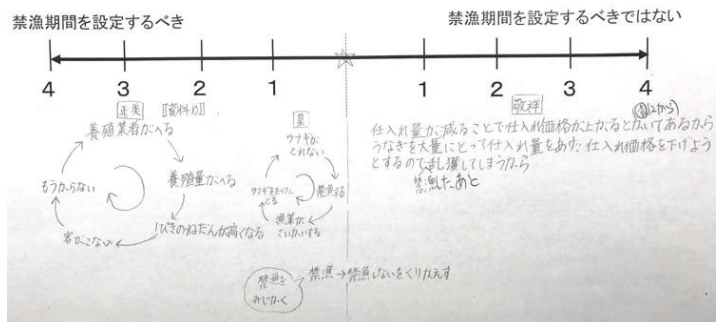 禁漁期間を設定するべき
禁漁期間を設定するべきではない
4 3 2 1 1 2 3 4
正美
養殖業者がへる
養殖量がへる
1ぴきのねだんが高くなる
客がこない
もうからない
ウナギが
とれない
禁魚する
漁業が
さいかいする
ウナギをたくさん
とる
敬祥
仕入れ量が減ることで仕入れ価格が上がるとかいてあるから
うなぎを大量にとって仕入れ量をふやし仕入れ価格を下げよう
とするので乱獲してしまうから
禁魚したあと
禁魚を
みじかく
禁漁→禁魚しないをくりかえす